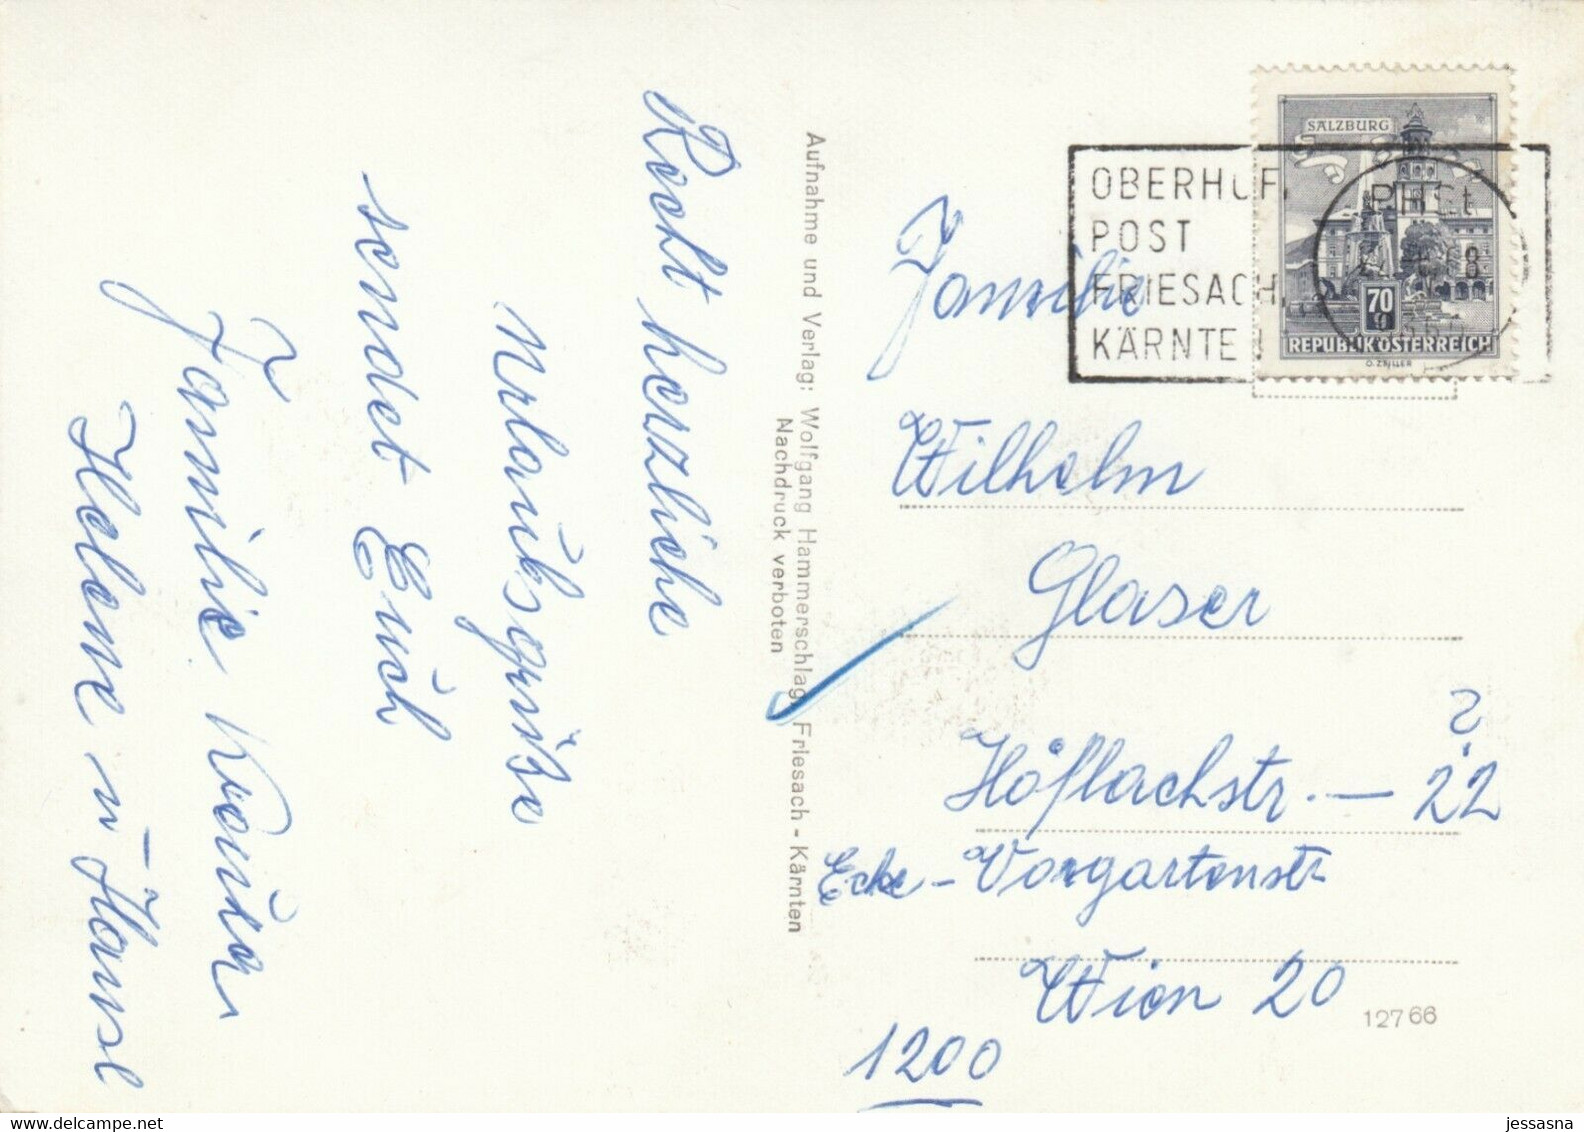 Recht herzliche
Urlaubsgrüße
sendet Euch
Familie
Helene u Hansl
Aufnahme und Verlag: Wolfgang Hammerschlag, Friesach - Kärnten
Nachdruck verboten
SALZBURG
70
REPUBLIK ÖSTERREICH
O. ZEILLER
POST
FRIESACH,
Familie
Wilhelm
Glaser
?
Höflachstr. — 22
Ecke - Vorgartenstr
Wien 20
1200
127 66
jessasna